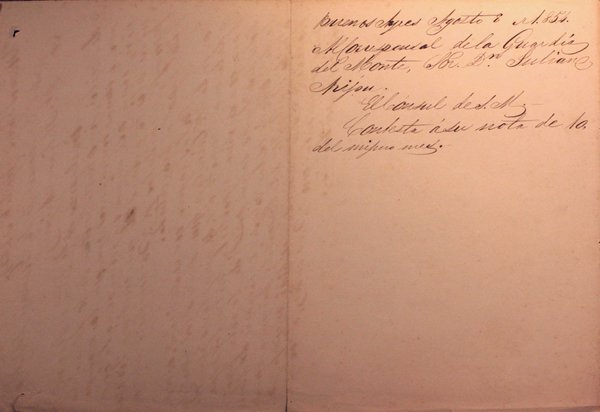 Buenos Ayres Agosto 6 de 1.854.
Al corresponsal de la Guardia
del Monte, Sor. Dn. Julian
El Cónsul de S. M.-
Contesta á su nota de 1o.
del mismo mes.-